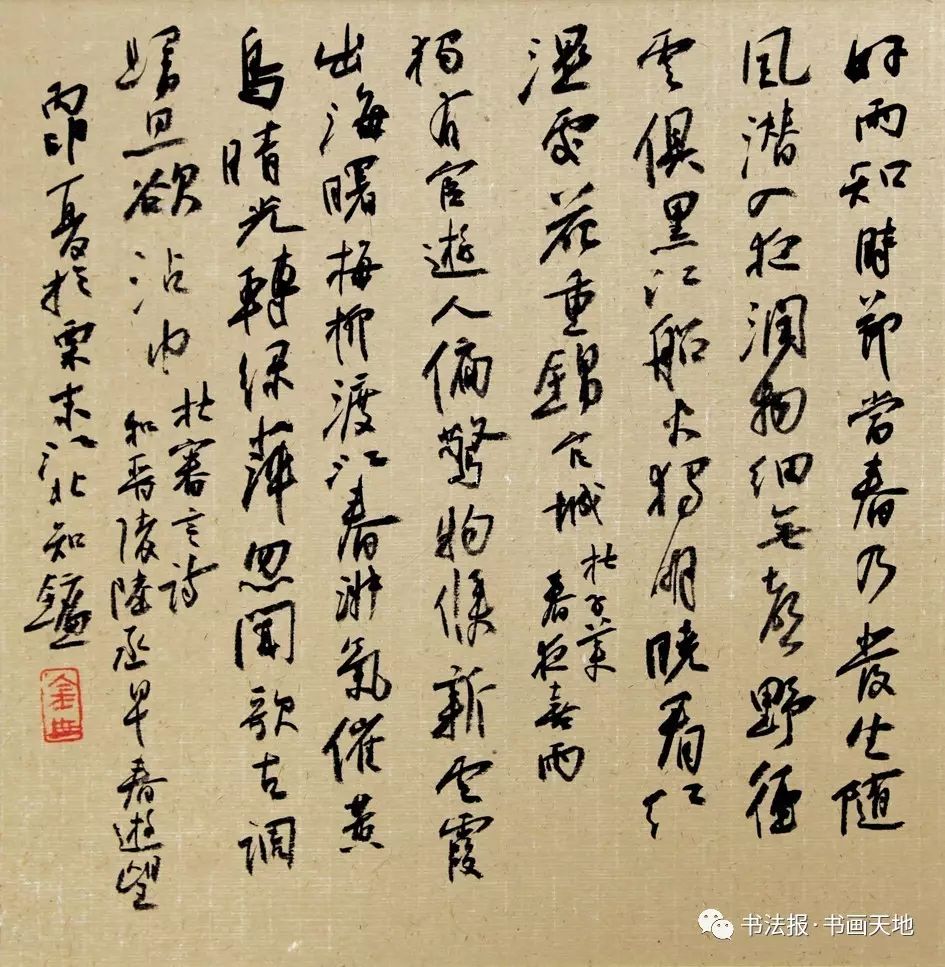 好雨知時節當春乃發生随
風潜入夜潤物细無聲野徑
雲俱黑江船火獨明曉看红
濕處花重錦官城
杜子美
春夜喜雨
獨有宦遊人偏驚物候新雲霞
出海曙梅柳渡江春淑氣催黄
鳥晴光轉绿蘋忽聞歌古調
歸思欲沾巾
杜審言詩
和晋陵陸丞早春遊望
丙申夏於粟末江北知
书法报·书画天地